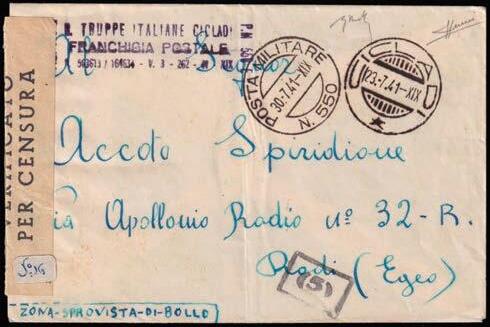 TRUPPE ITALIANE CICLADI
FRANCHIGIA POSTALE
N. 563613 / 164634 - V. 3 - 262 - XIX
POSTA MILITARE
30.7.41-XIX
N. 550
23.7.41-XIX
VERIFICATO
PER CENSURA
Al Signor
Accoto Spiridione
Via Apollonio Radio nº 32-R.
Rodi (Egeo)
(5)
ZONA-SPROVISTA-DI-BOLLO